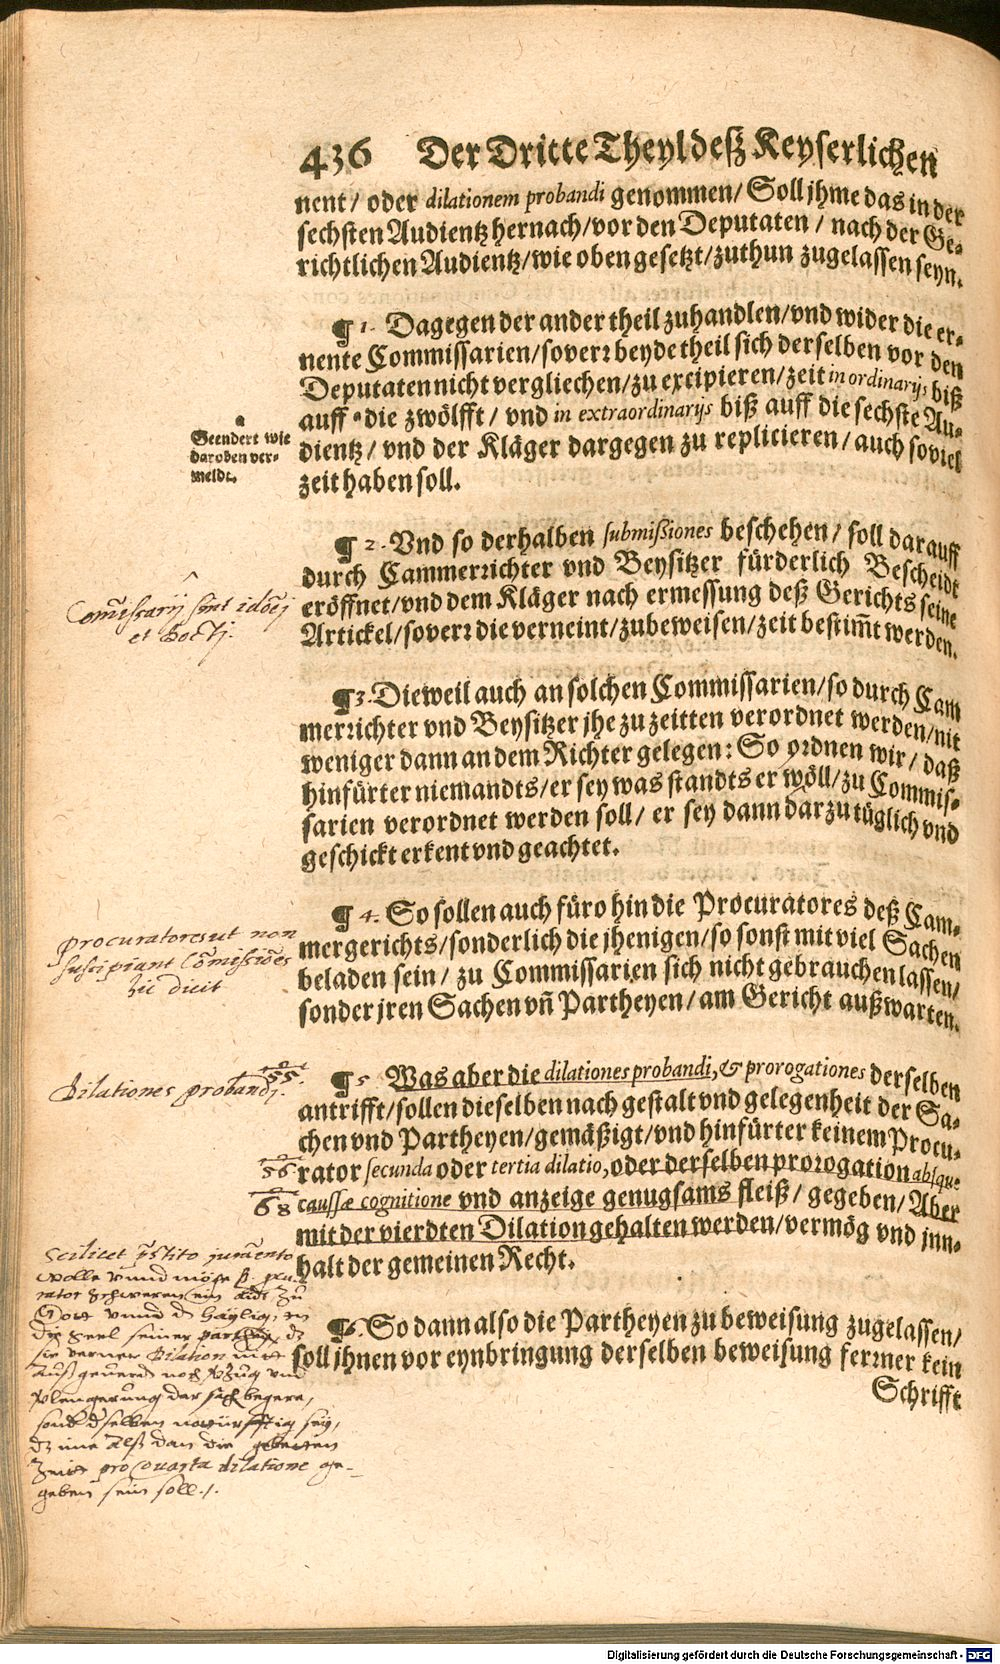 436 Der Dritte Theyl deß Keyserlichen
nent / oder dilationem probandi genommen / Soll jhme das in der
sechsten Audientz hernach / vor den Deputaten / nach der Ge-
richtlichen Audientz / wie oben gesetzt / zuthun zugelassen seyn.
¶ 1. Dagegen der ander theil zuhandlen / vnd wider die er-
nente Commissarien / soverr beyde theil sich derselben vor den
Deputaten nicht vergliechen / zu excipieren / zeit in ordinarijs biß
auff a die zwölfft / vnd in extraordinarijs biß auff die sechste Au-
dientz / vnd der Kläger dargegen zu replicieren / auch soviel
zeit haben soll.
a
Geendert wie
daroben ver-
meldt.
¶ 2. Vnd so derhalben submißiones beschehen / soll darauff
durch Cammerrichter vnd Beysitzer fürderlich Bescheidt
eröffnet / vnd dem Kläger nach ermessung deß Gerichts seine
Artickel / soverr die verneint / zubeweisen / zeit bestim̃t werden.
Com̄issarij sint idōej
et Doctj.
¶ 3. Dieweil auch an solchen Commissarien / so durch Cam
merrichter vnd Beysitzer jhe zu zeitten verordnet werden / nit
weniger dann an dem Richter gelegen: So ordnen wir / daß
hinfürter niemandts / er sey was standts er wöll / zu Commis-
sarien verordnet werden soll / er sey dann darzu tüglich vnd
geschickt erkent vnd geachtet.
¶ 4. So sollen auch füro hin die Procuratores deß Cam-
mergerichts / sonderlich die jhenigen / so sonst mit viel Sachen
beladen sein / zu Commissarien sich nicht gebrauchen lassen /
sonder jren Sachen vñ Partheyen / am Gericht außwarten.
procuratores ut non
suscipiant Com̄issiōes
hic dicit
¶ 5 Was aber die dilationes probandi, & prorogationes derselben
antrifft / sollen dieselben nach gestalt vnd gelegenheit der Sa-
chen vnd Partheyen / gemäßigt / vnd hinfürter keinem Procu-
rator secunda oder tertia dilatio, oder derselben prorogation absque
caussæ cognitione vnd anzeige genugsams fleiß / gegeben / Aber
mit der vierdten Dilation gehalten werden / vermög vnd jnn-
halt der gemeinen Recht.
55.
Dilationes probandj.
56
68
Scilicet p̄stito juramento
wolle vnnd möge
rator schweren ein aidt zu
Gott vnnd
die Seel seiner parthey
sie verner Dilation
begere,
sey,
die gebetten
Zeitt pro quarta dilatione ge-
geben sein soll./.
¶ 6. So dann also die Partheyen zu beweisung zugelassen /
soll jhnen vor eynbringung derselben beweisung ferrner kein
Schrifft
Digitalisierung gefördert durch die Deutsche Forschungsgemeinschaft - DFG